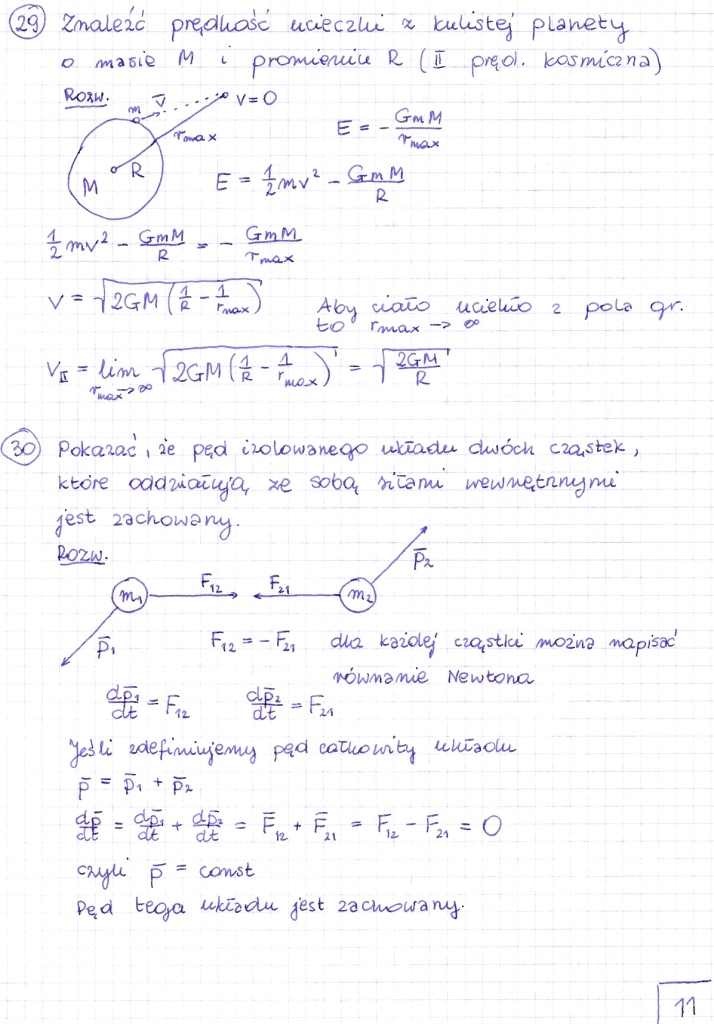 29 Znaleźć prędkość ucieczki z kulistej planety
o masie M i promieniu R (II pręd. kosmiczna)
Rozw.
m v̄ v=0
r_max
M R
E = - GmM / r_max
E = 1/2 mv² - GmM / R
1/2 mv² - GmM / R = - GmM / r_max
v = √(2GM (1/R - 1/r_max)) Aby ciało uciekło z pola gr.
to r_max → ∞
V_II = lim r_max→∞ √(2GM (1/R - 1/r_max)) = √(2GM / R)
30 Pokazać, że pęd izolowanego układu dwóch cząstek,
które oddziałują ze sobą siłami wewnętrznymi
jest zachowany.
Rozw.
p̄₂
m₁ F₁₂ F₂₁ m₂
p̄₁ F₁₂ = - F₂₁ dla każdej cząstki można napisać
równanie Newtona
dp̄₁/dt = F₁₂ dp̄₂/dt = F₂₁
Jeśli zdefiniujemy pęd całkowity układu
p̄ = p̄₁ + p̄₂
dp̄/dt = dp̄₁/dt + dp̄₂/dt = F̄₁₂ + F̄₂₁ = F₁₂ - F₂₁ = 0
czyli p̄ = const
Pęd tega układu jest zachowany.
11